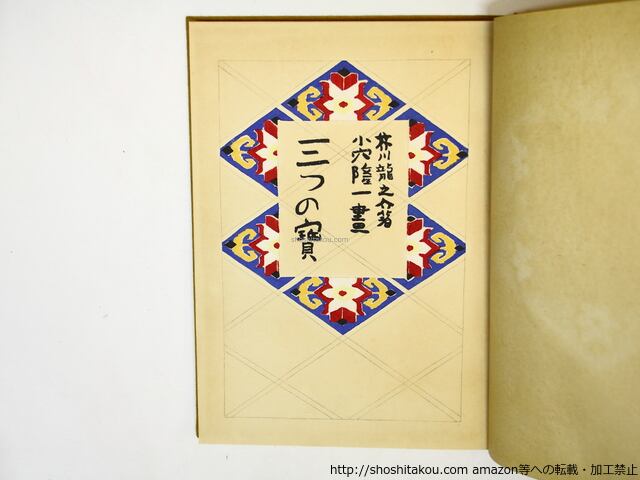 芥川龍之介著
小穴隆一畫
三つの寶
shoshitakou.com
http://shoshitakou.com amazon等への転載・加工禁止